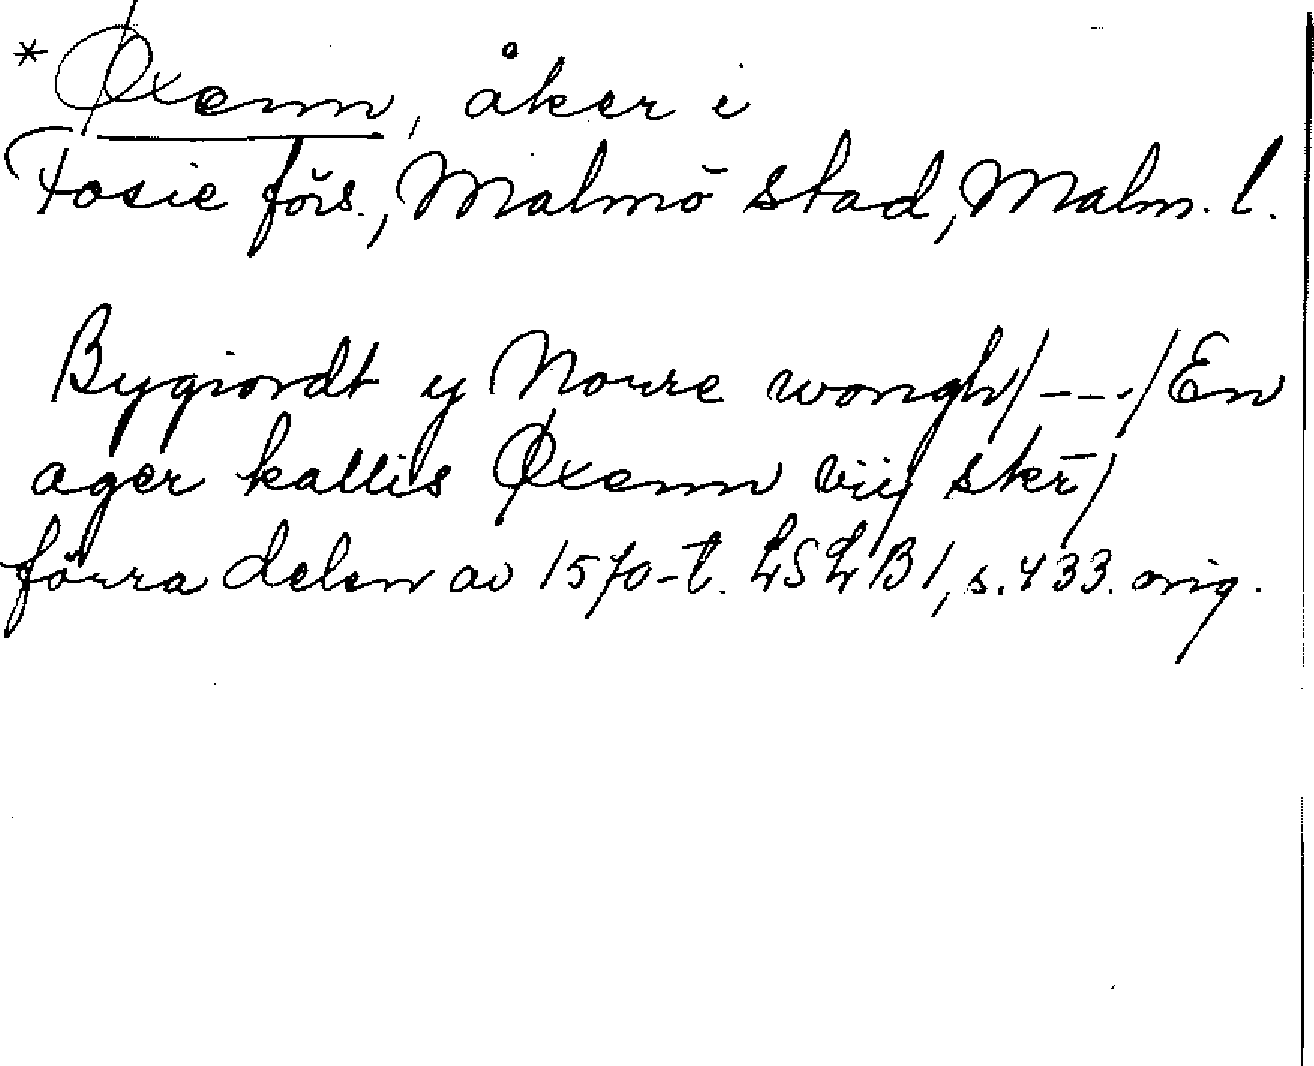 *Øxenn, åker i
Fosie förs., Malmö stad, Malm. l.
Bygiordt y Norre wongh/---/En
ager kallis Øxenn viij skr̄/
förra delen av 1570-t. LSLB1, s. 433. orig.